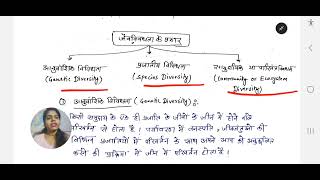 जैवविविधता के प्रकार
आनुवांशिक विविधता
(Genetic Diversity)
प्रजातीय विविधता
(Species Diversity)
सामुदायिक या पारिस्थितिकीय
(Community or Ecosystem
Diversity)
① आनुवांशिक विविधता (Genetic Diversity) :
किसी समुदाय के एक ही प्रजाति के जीवों के जीन में होने वाले
परिवर्तन से होता है। पर्यावरण में बदलाव, जीवजंतुओं की
विभिन्न प्रजातियों में परिवर्तन के साथ अपने आप को अनुकूलित
करने की प्रक्रिया में जीन में परिवर्तन होता है।